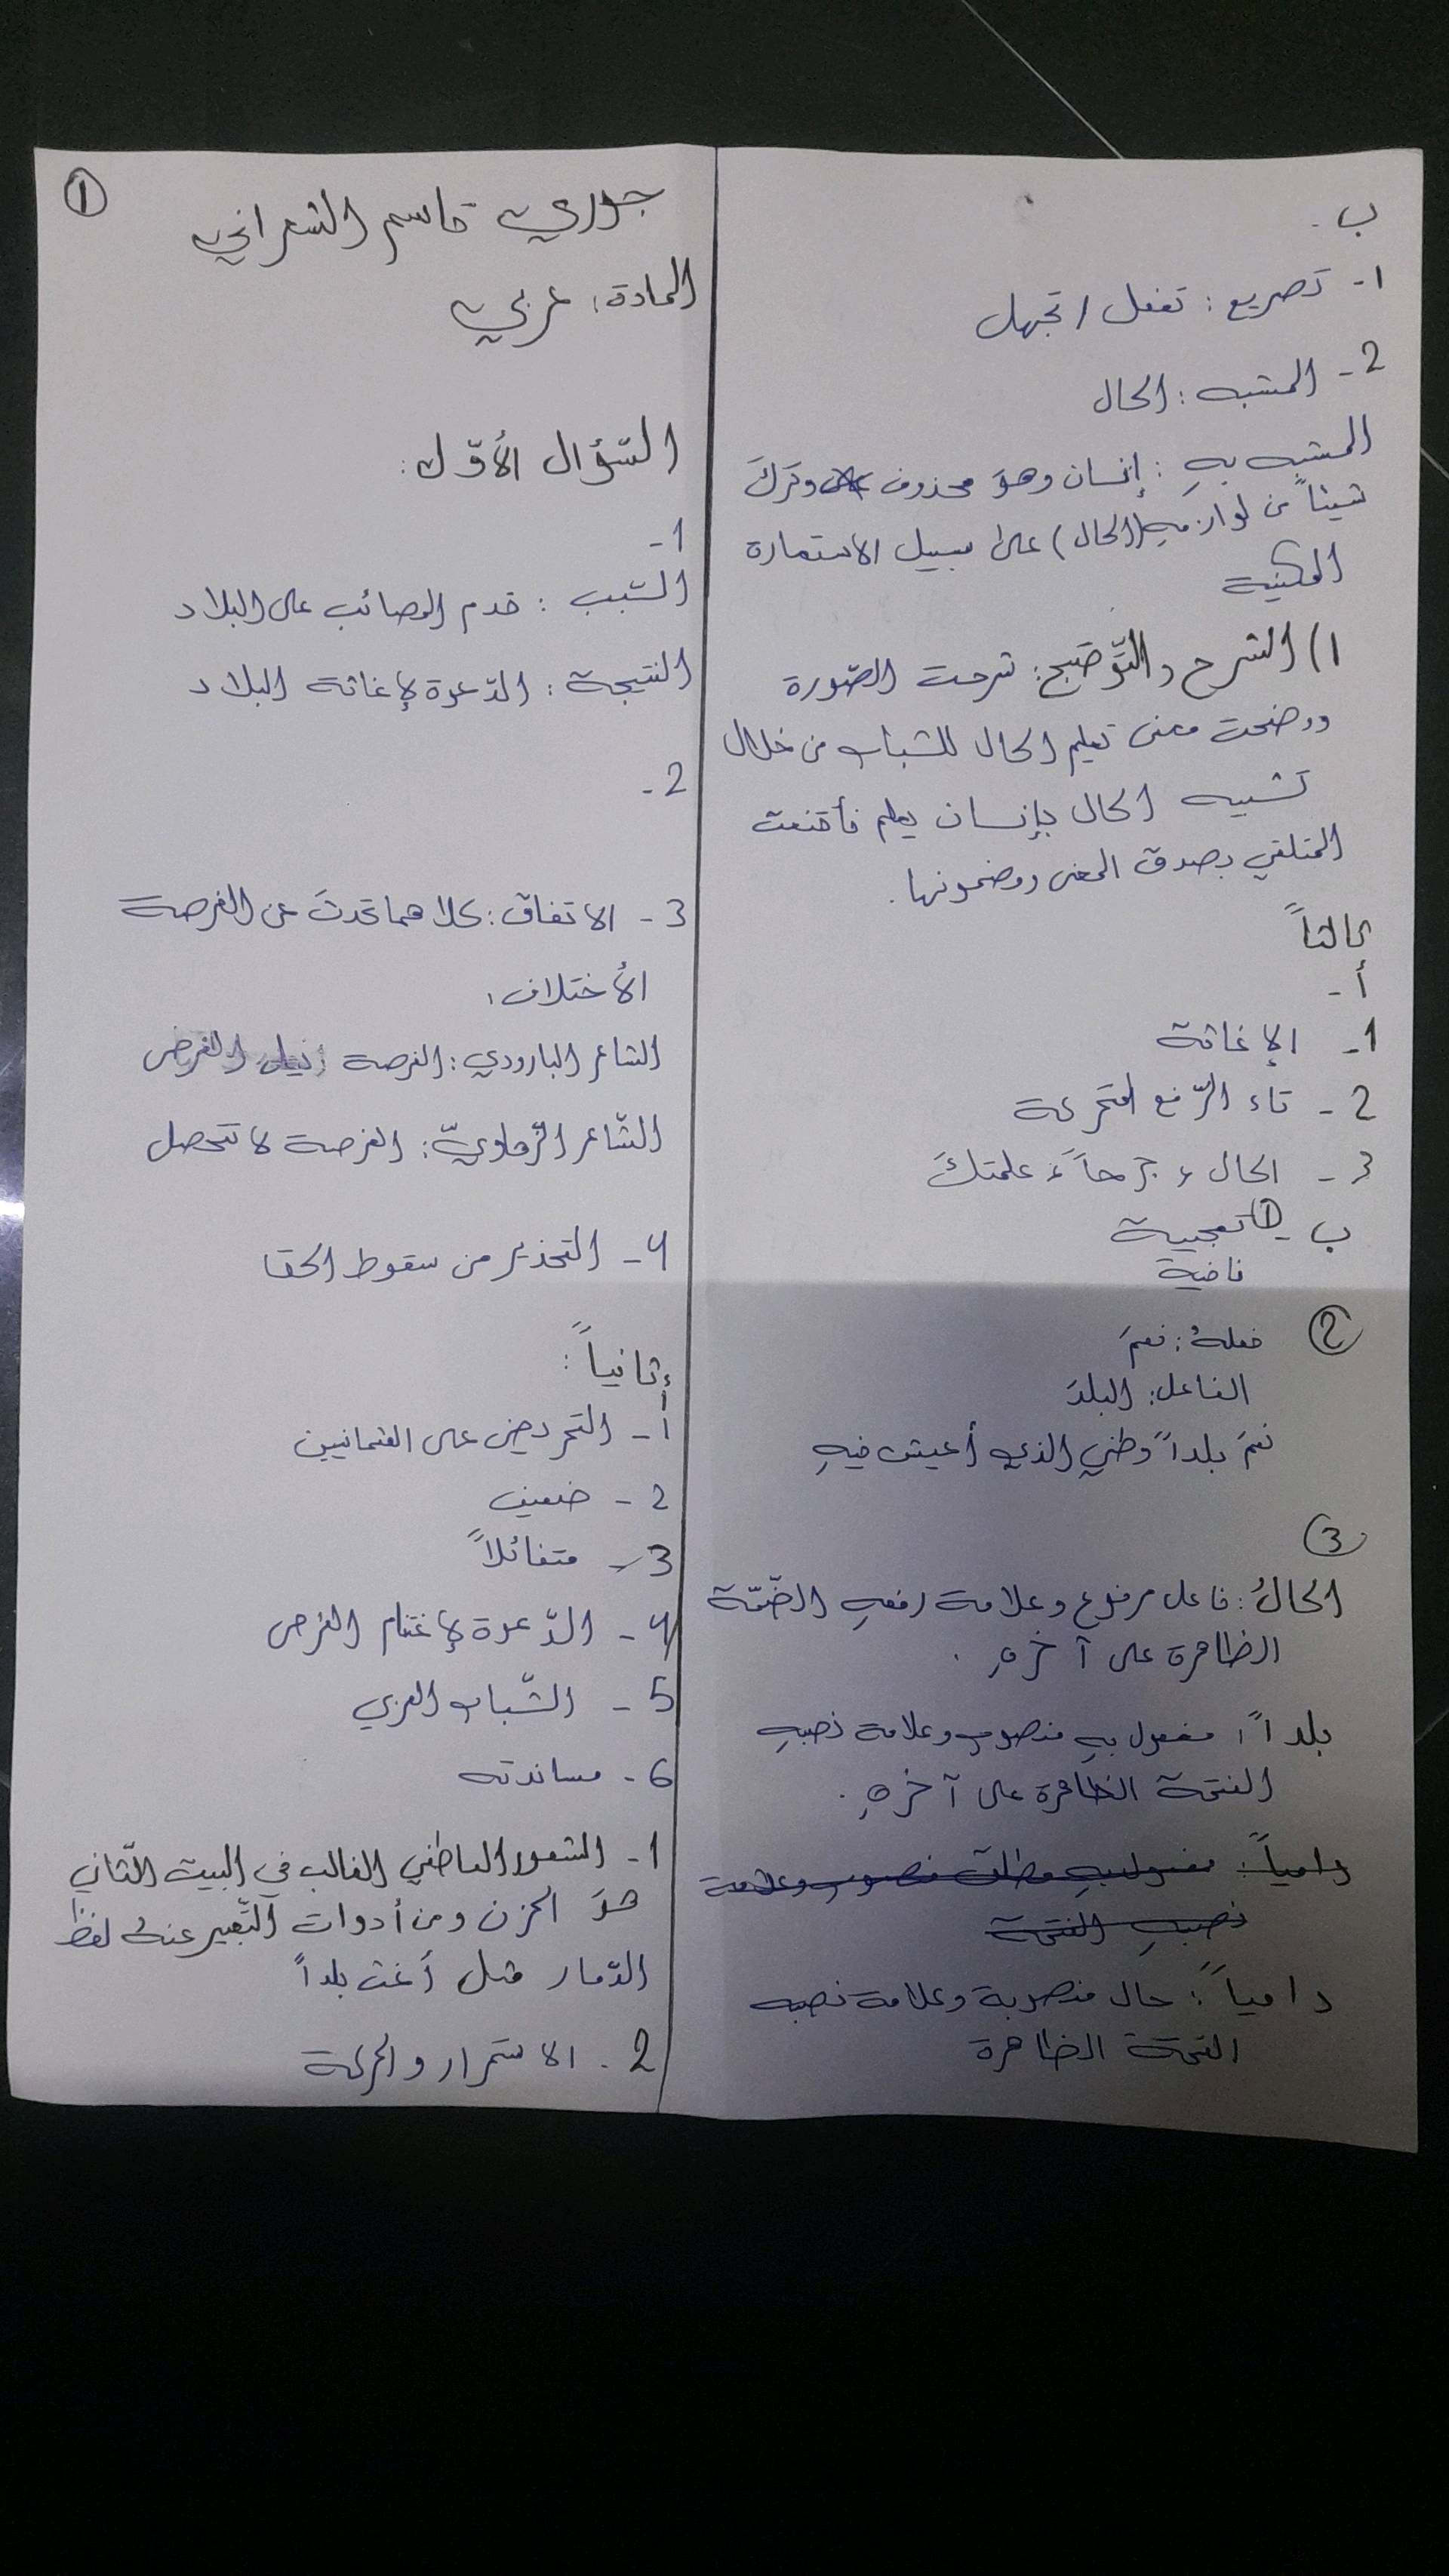 ①
جوري قاسم الشعراني
المادة: عربي
السّؤال الأوّل:
1-
السّبب: قدم المصائب على البلاد
النتيجة: الدّعوة لإغاثة البلاد
2-
3- الاتفاق: كلاهما تحدثَ عن الفرصة
الأختلاف:
الشاعر البارودي: الفرصة نيل الفرص
الشّاعر الزّهاويّ: الفرصة لا تتحصل
4- التحذير من سقوط الحقا
ثانياً:
أ- التحريض على العثمانيين
2- ضعيف
3- متفائلاً
4- الدّعوة لإغتنام الفرص
5- الشّباب العربي
6- مساندته
1- الشعور العاطفي الغالب في البيت الثّاني
هوَ الحزن ومن أدوات التّعبير عنه لفظ
الدّمار مثل أغث بلداً
2. الاستمرار والحركة
ب.
1- تصريع: تغفل / تجهل
2- المشبه: الحال
المشبه بهِ: إنسان وهوَ محذوف وتركَ
شيئاً من لوازمهِ (الحال) على سبيل الاستعارة
المكنية
1) الشرح والتّوضيح: شرحت الصّورة
ووضحت معنى تعليم الحال للشباب من خلال
تشبيه الحال بإنسان يعلم فأقنعت
المتلقي بصدق المعنى ومضمونها.
ثالثاً
أ-
1- الإغاثة
2- تاء الرّفع المتحركة
3- الحال، جرحاً، علمتكَ
ب - ① تعجبية
ماضية
② فعله: نعمَ
الفاعل: البلدَ
نعمَ بلداً وطني الذي أعيش فيهِ
③
الحالُ: فاعل مرفوع وعلامة رفعهِ الضّمّة
الظاهرة على آخرهِ.
بلداً: مفعول بهِ منصوب وعلامة نصبهِ
الفتحة الظاهرة على آخرهِ.
دامياً: مفعول به مطلق منصوب وعلامة
نصبهِ الفتحة
دامياً: حال منصوبة وعلامة نصبه
الفتحة الظاهرة